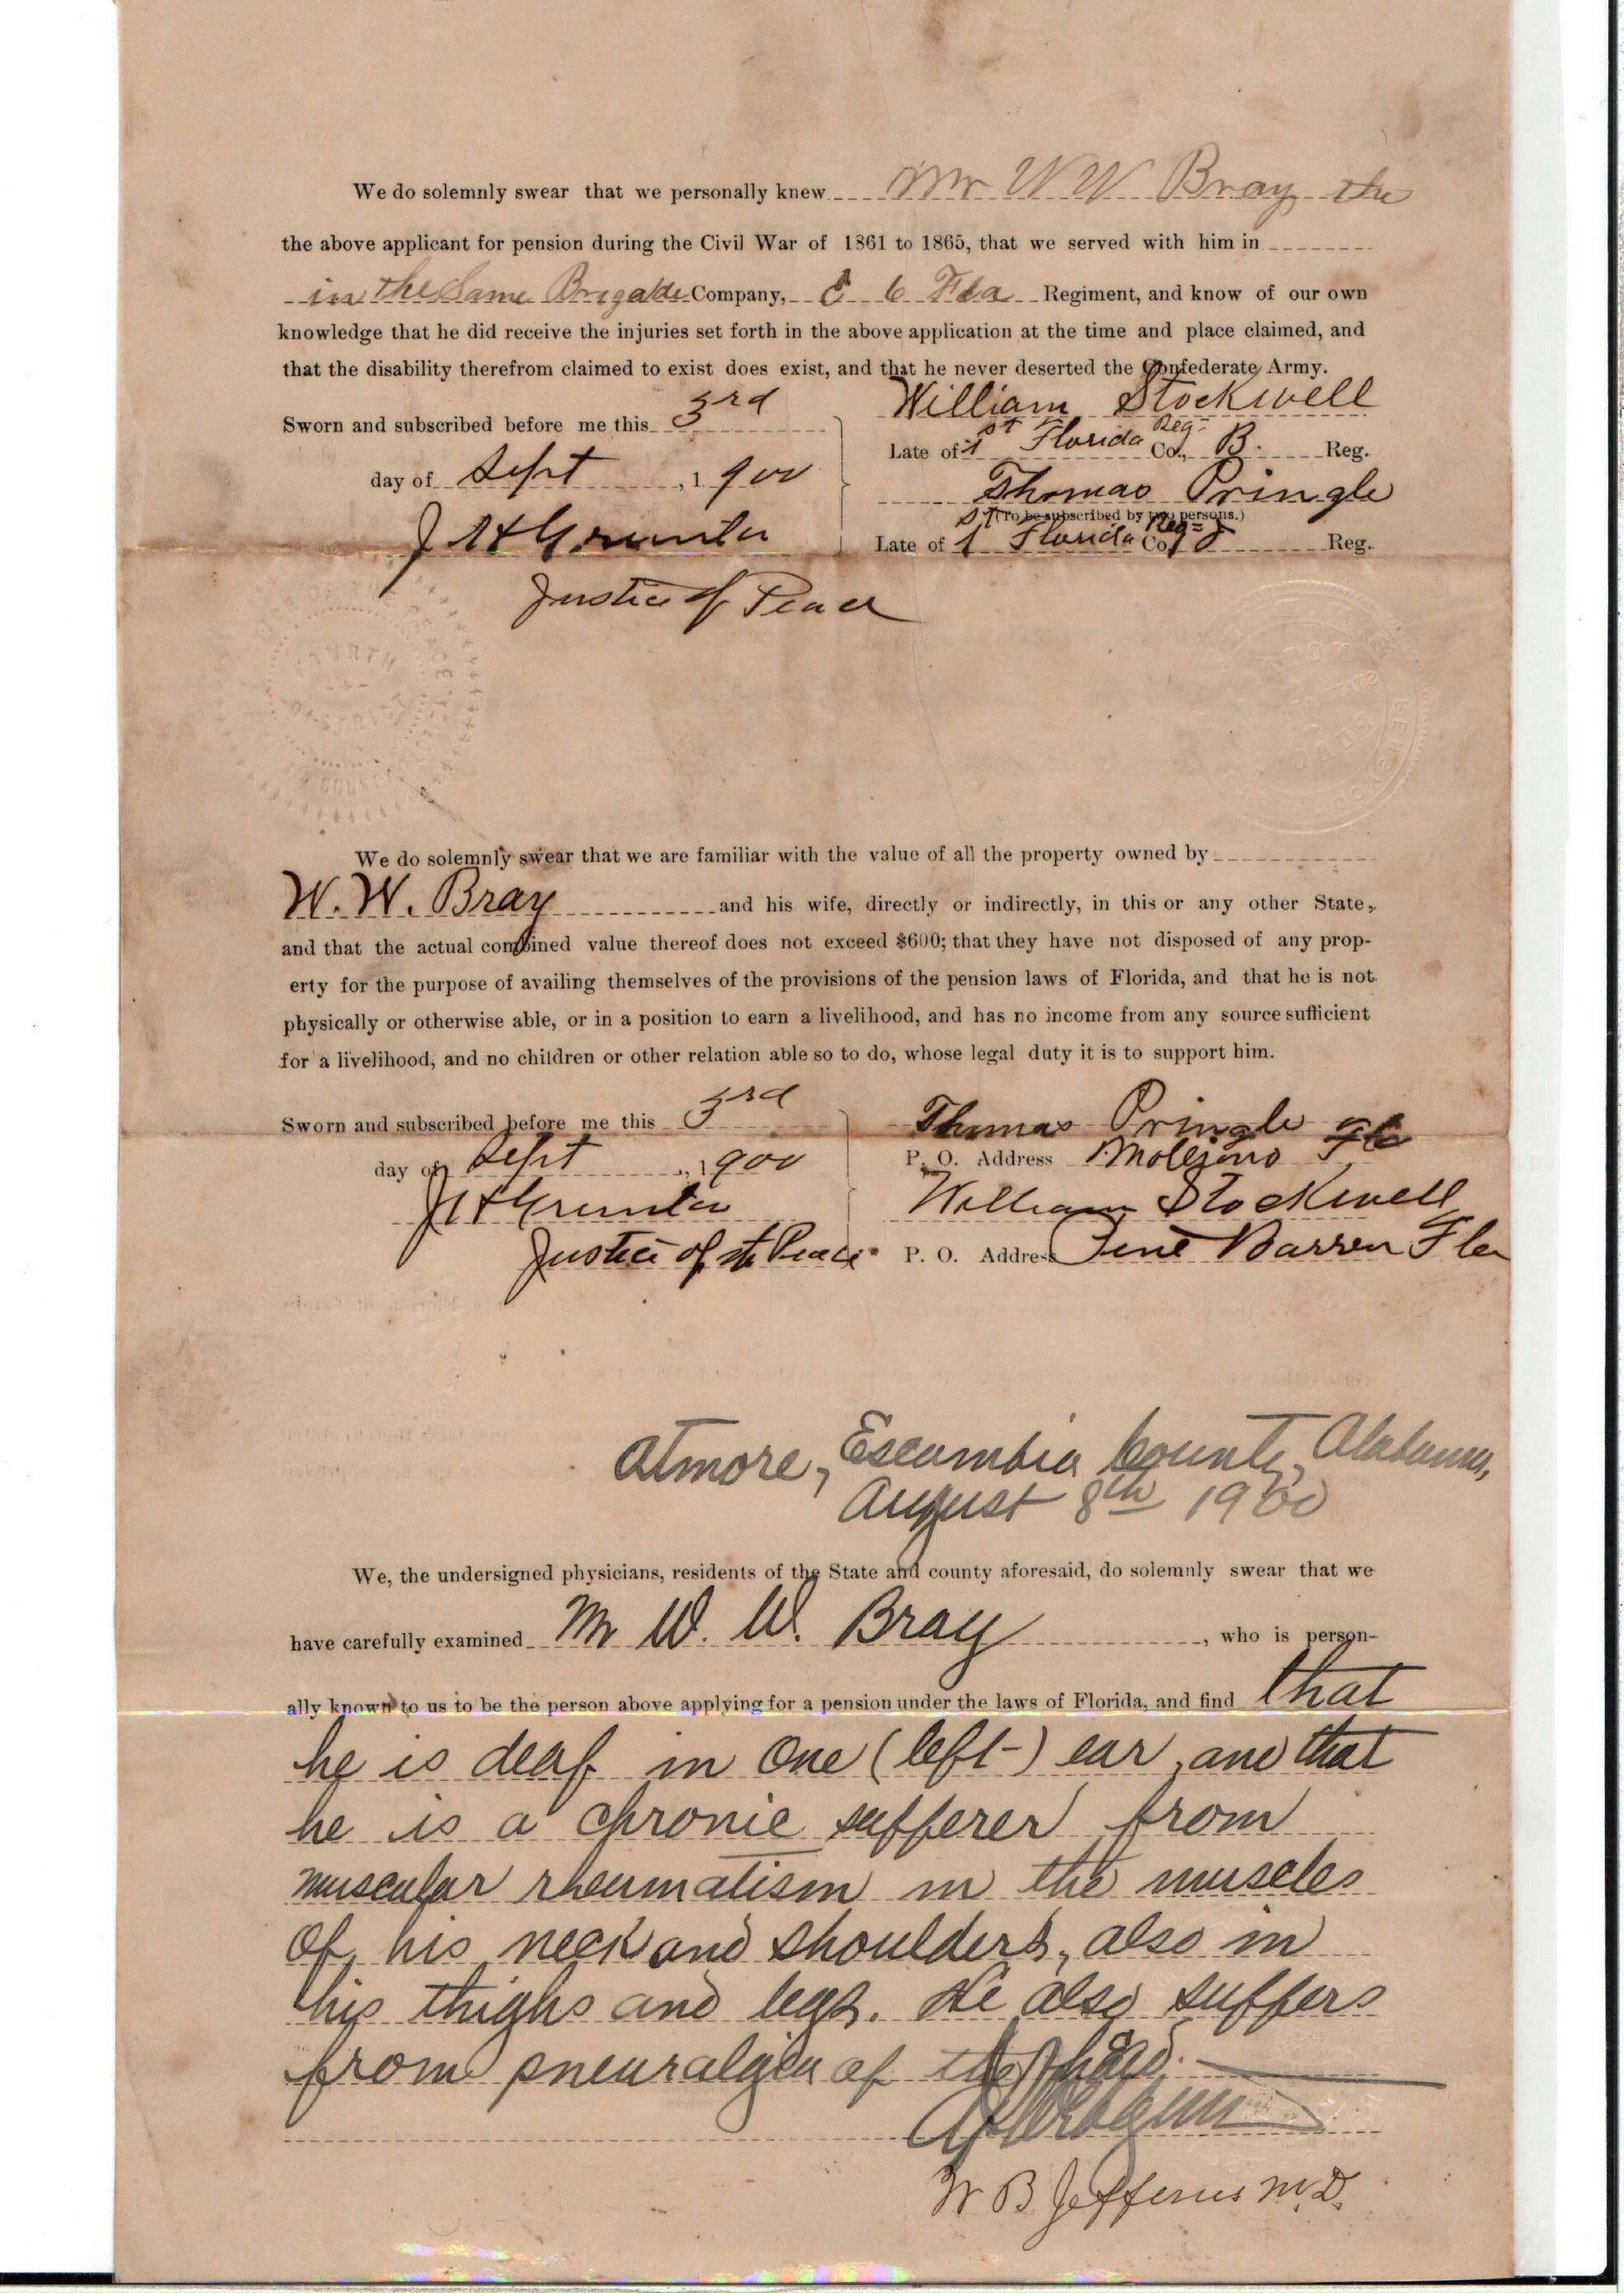 We do solemnly swear that we personally knew Mr W W Bray the
the above applicant for pension during the Civil War of 1861 to 1865, that we served with him in
in the Same Brigade Company, 6 Fla Regiment, and know of our own
knowledge that he did receive the injuries set forth in the above application at the time and place claimed, and
that the disability therefrom claimed to exist does exist, and that he never deserted the Confederate Army.
William Stockwell
Sworn and subscribed before me this 3rd
Late of 1st Florida Reg= Co., B. Reg.
day of Sept, 1900
Thomas Pringle
(To be subscribed by two persons.)
J H
Late of 1st Florida Reg= Co. Reg.
Justice of Peace
We do solemnly swear that we are familiar with the value of all the property owned by
W. W. Bray and his wife, directly or indirectly, in this or any other State,
and that the actual combined value thereof does not exceed $600; that they have not disposed of any prop-
erty for the purpose of availing themselves of the provisions of the pension laws of Florida, and that he is not
physically or otherwise able, or in a position to earn a livelihood, and has no income from any source sufficient
for a livelihood, and no children or other relation able so to do, whose legal duty it is to support him.
Sworn and subscribed before me this 3rd
Thomas Pringle
day of Sept, 1900
P. O. Address Molino Fla
J H
William Stockwell
Justice of the Peace
P. O. Address Pine Barren Fla
Atmore, Escambia County, Alabama,
August 8th 1900
We, the undersigned physicians, residents of the State and county aforesaid, do solemnly swear that we
have carefully examined Mr W. W. Bray, who is person-
ally known to us to be the person above applying for a pension under the laws of Florida, and find that
he is deaf in one (left-) ear, and that
he is a chronic sufferer from
muscular rheumatism in the muscles
of his neck and shoulders, also in
his thighs and legs. He also suffers
from pneuralgia of the head.
W B Jefferies M.D.